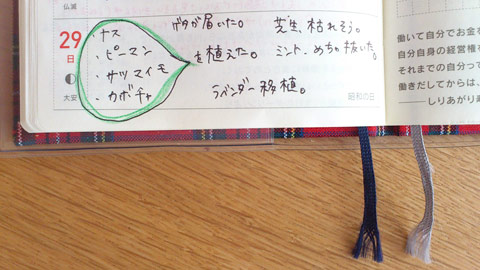 仏滅
29
日
大安
・ナス
・ピーマン
・サツマイモ
・カボチャ
を植えた。
ゲタが届いた。
芝生、枯れそう。
ミント、めちゃ抜いた。
ラベンダー移植。
昭和の日
働いて自分でお金を
自分自身の経営権を
それまでの自分って
働きだしてからは、
――しりあがり寿